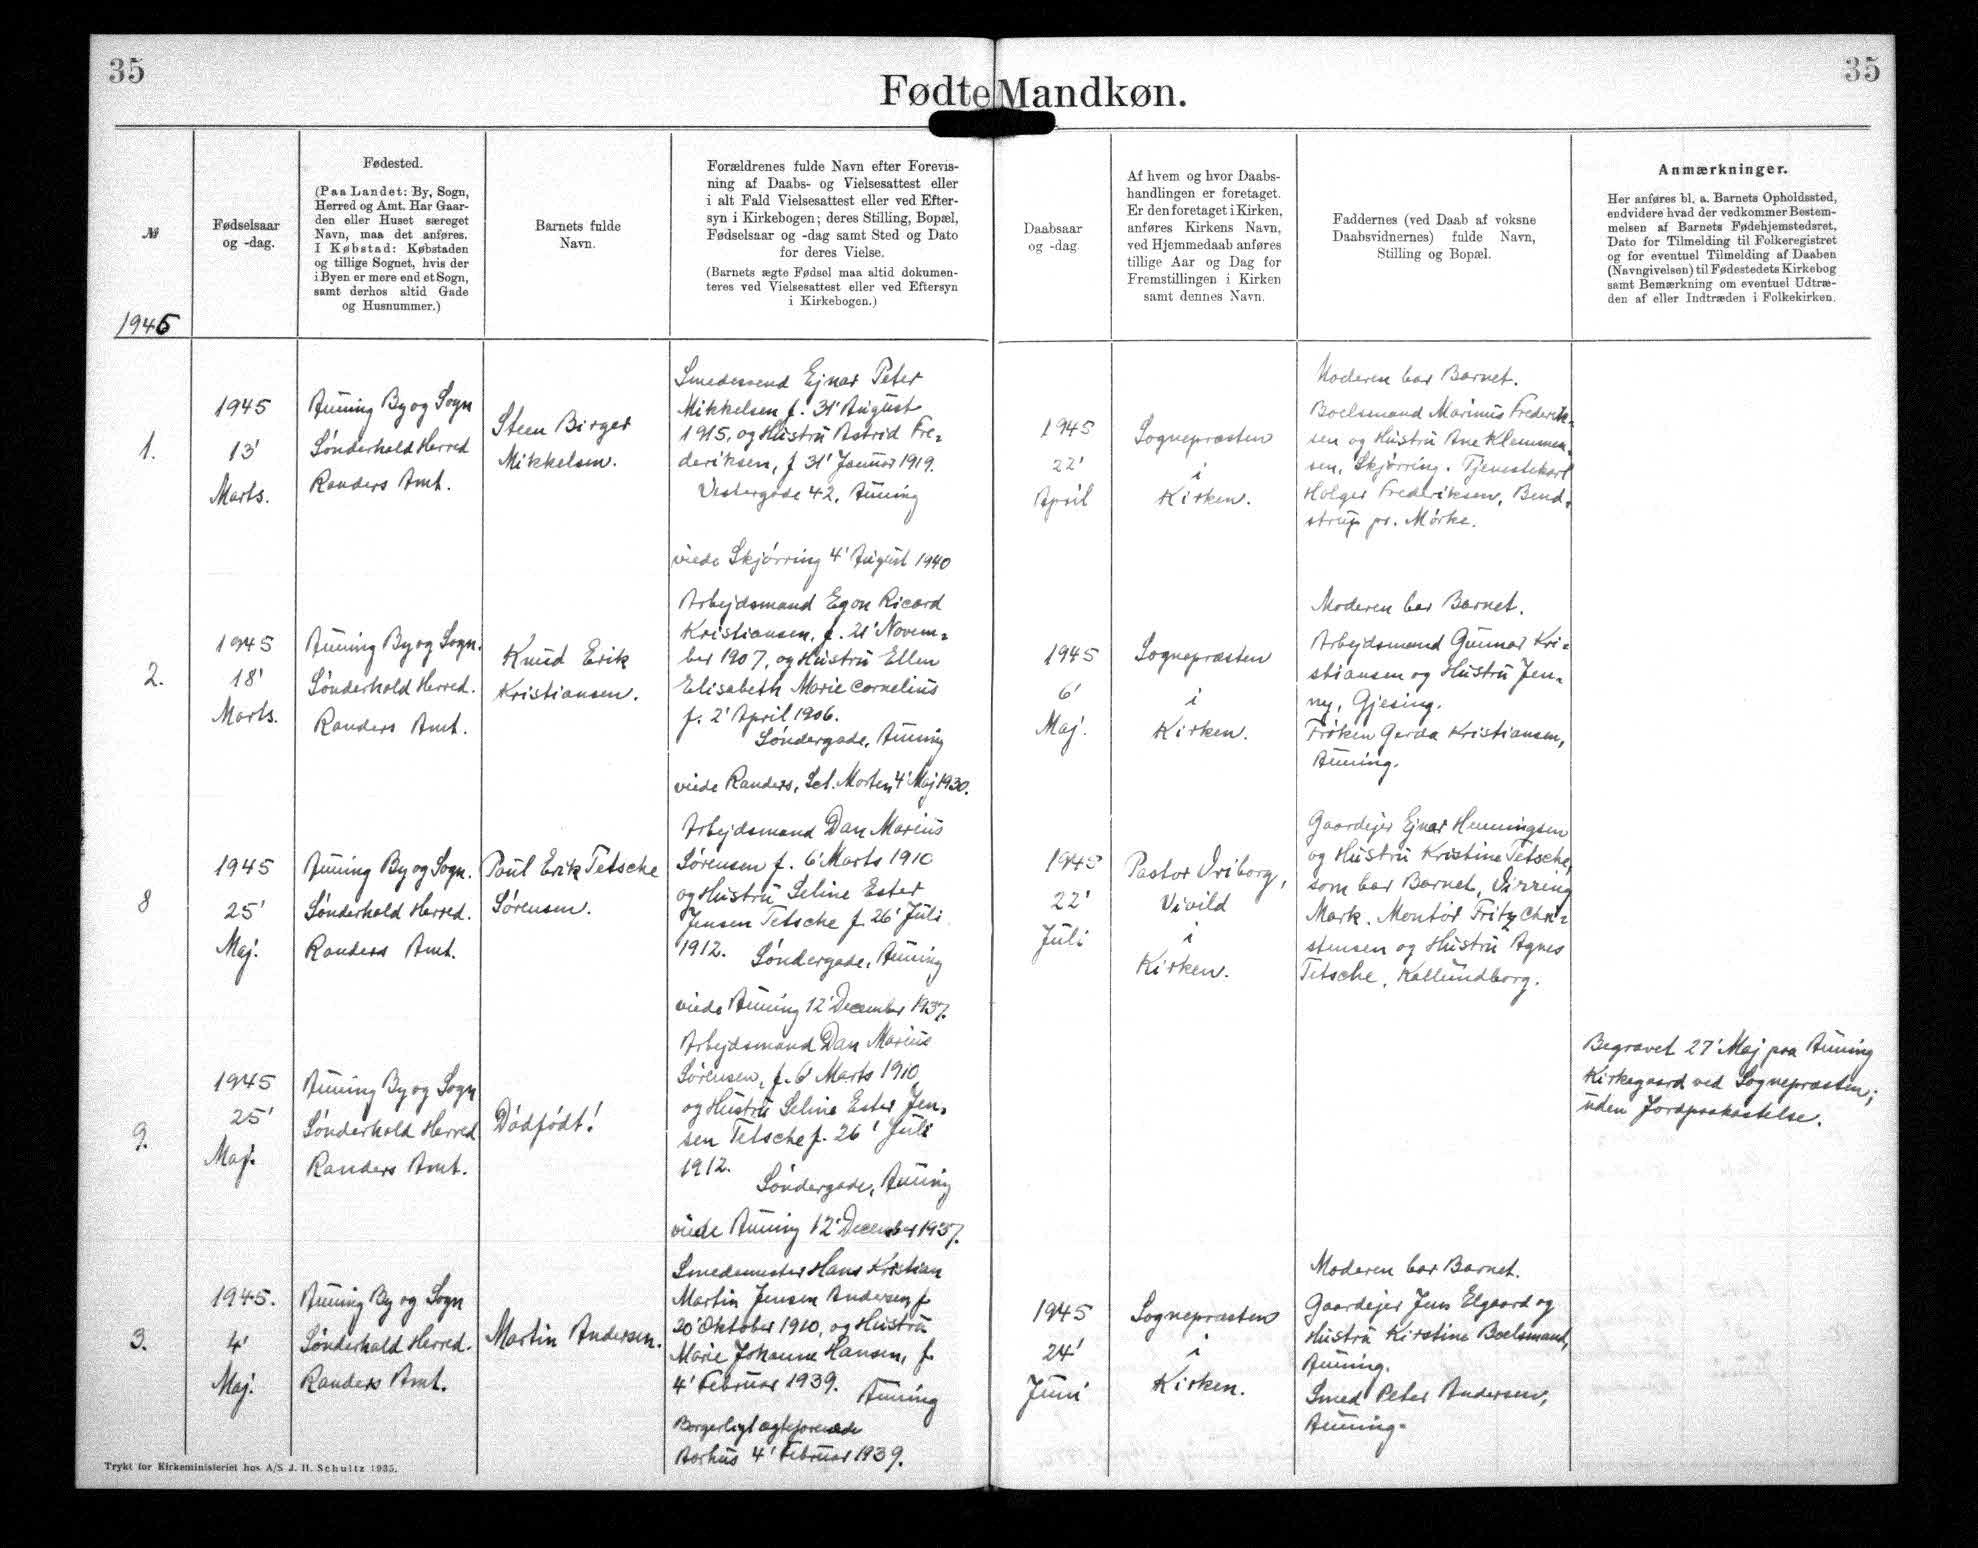 35
35
Fødte Mandkøn.
№
Fødselsaar
og -dag.
Fødested.
(Paa Landet: By, Sogn,
Herred og Amt. Har Gaar-
den eller Huset særeget
Navn, maa det anføres.
I Købstad: Købstaden
og tillige Sognet, hvis der
i Byen er mere end et Sogn,
samt derhos altid Gade
og Husnummer.)
Barnets fulde
Navn.
Forældrenes fulde Navn efter Forevis-
ning af Daabs- og Vielsesattest eller
i alt Fald Vielsesattest eller ved Efter-
syn i Kirkebogen; deres Stilling, Bopæl,
Fødselsaar og -dag samt Sted og Dato
for deres Vielse.
(Barnets ægte Fødsel maa altid dokumen-
teres ved Vielsesattest eller ved Eftersyn
i Kirkebogen.)
Daabsaar
og -dag.
Af hvem og hvor Daabs-
handlingen er foretaget.
Er den foretaget i Kirken,
anføres Kirkens Navn,
ved Hjemmedaab anføres
tillige Aar og Dag for
Fremstillingen i Kirken
samt dennes Navn.
Faddernes (ved Daab af voksne
Daabsvidnernes) fulde Navn,
Stilling og Bopæl.
Anmærkninger.
Her anføres bl. a. Barnets Opholdssted,
endvidere hvad der vedkommer Bestem-
melsen af Barnets Fødehjemstedsret,
Dato for Tilmelding til Folkeregistret
og for eventuel Tilmelding af Daaben
(Navngivelsen) til Fødestedets Kirkebog
samt Bemærkning om eventuel Udtræ-
den af eller Indtræden i Folkekirken.
1945
1.
1945
13'
Marts.
Auning By og Sogn
Sønderhald Herred
Randers Amt.
Steen Birger
Mikkelsen.
Smedesvend Ejnar Peter
Mikkelsen f. 31' August
1915, og Hustru Astrid Fre=
deriksen, f 31' Januar 1919.
Vestergade 42, Auning
viede Skjørring 4' August 1940
1945
22'
April
Sognepræsten
i
Kirken.
Moderen bar Barnet.
Boelsmand Marinus Frederik=
sen og Hustru Ane Klemmen=
sen, Skjørring. Tjenestekarl
Holger Frederiksen, Bend=
strup pr. Mørke.
2.
1945
18'
Marts.
Auning By og Sogn.
Sønderhald Herred.
Randers Amt.
Knud Erik
Kristiansen.
Arbejdsmand Egon Ricard
Kristiansen, f. 21' Novem=
ber 1907, og Hustru Ellen
Elisabeth Marie Cornelius
f. 2' April 1906.
Søndergade, Auning
viede Randers, Sct. Morten 4' Maj 1930.
1945
6'
Maj.
Sognepræsten
i
Kirken.
Moderen bar Barnet.
Arbejdsmand Gunnar Kri=
stiansen og Hustru Jen=
ny, Gjesing.
Frøken Gerda Kristiansen,
Auning.
8
1945
25'
Maj.
Auning By og Sogn.
Sønderhald Herred.
Randers Amt.
Poul Erik Tetsche
Sørensen.
Arbejdsmand Dan Marius
Sørensen f. 6' Marts 1910
og Hustru Seline Ester
Jensen Tetsche f. 26' Juli
1912. Søndergade, Auning
viede Auning 12' December 1937.
1945
22'
Juli
Pastor Vriborg,
Vivild
i
Kirken.
Gaardejer Ejnar Henningsen
og Hustru Kristine Tetsche,
som bar Barnet, Virring
Mark. Montør Fritz Chri=
stensen og Hustru Agnes
Tetsche, Kallundborg.
9.
1945
25'
Maj.
Auning By og Sogn
Sønderhald Herred
Randers Amt.
Dødfødt!
Arbejdsmand Dan Marius
Sørensen, f. 6' Marts 1910,
og Hustru Seline Ester Jen=
sen Tetsche f. 26' Juli
1912.
Søndergade, Auning
viede Auning 12' December 1937.
Begravet 27' Maj paa Auning
Kirkegaard ved Sognepræsten;
uden Jordpaakastelse.
3.
1945.
4'
Maj.
Auning By og Sogn
Sønderhald Herred.
Randers Amt.
Martin Andersen.
Smedemester Hans Kristian
Martin Jensen Andersen f.
20' Oktober 1910, og Hustru
Marie Johanne Hansen, f.
4' Februar 1939.
Auning
Borgerligt ægteforenede
Aarhus 4' Februar 1939.
1945
24'
Juni
Sognepræsten
i
Kirken.
Moderen bar Barnet.
Gaardejer Jens Elgaard og
Hustru Kirstine Boelsmand,
Auning.
Smed Peter Andersen,
Auning.
Trykt for Kirkeministeriet hos A/S J. H. Schultz 1935.